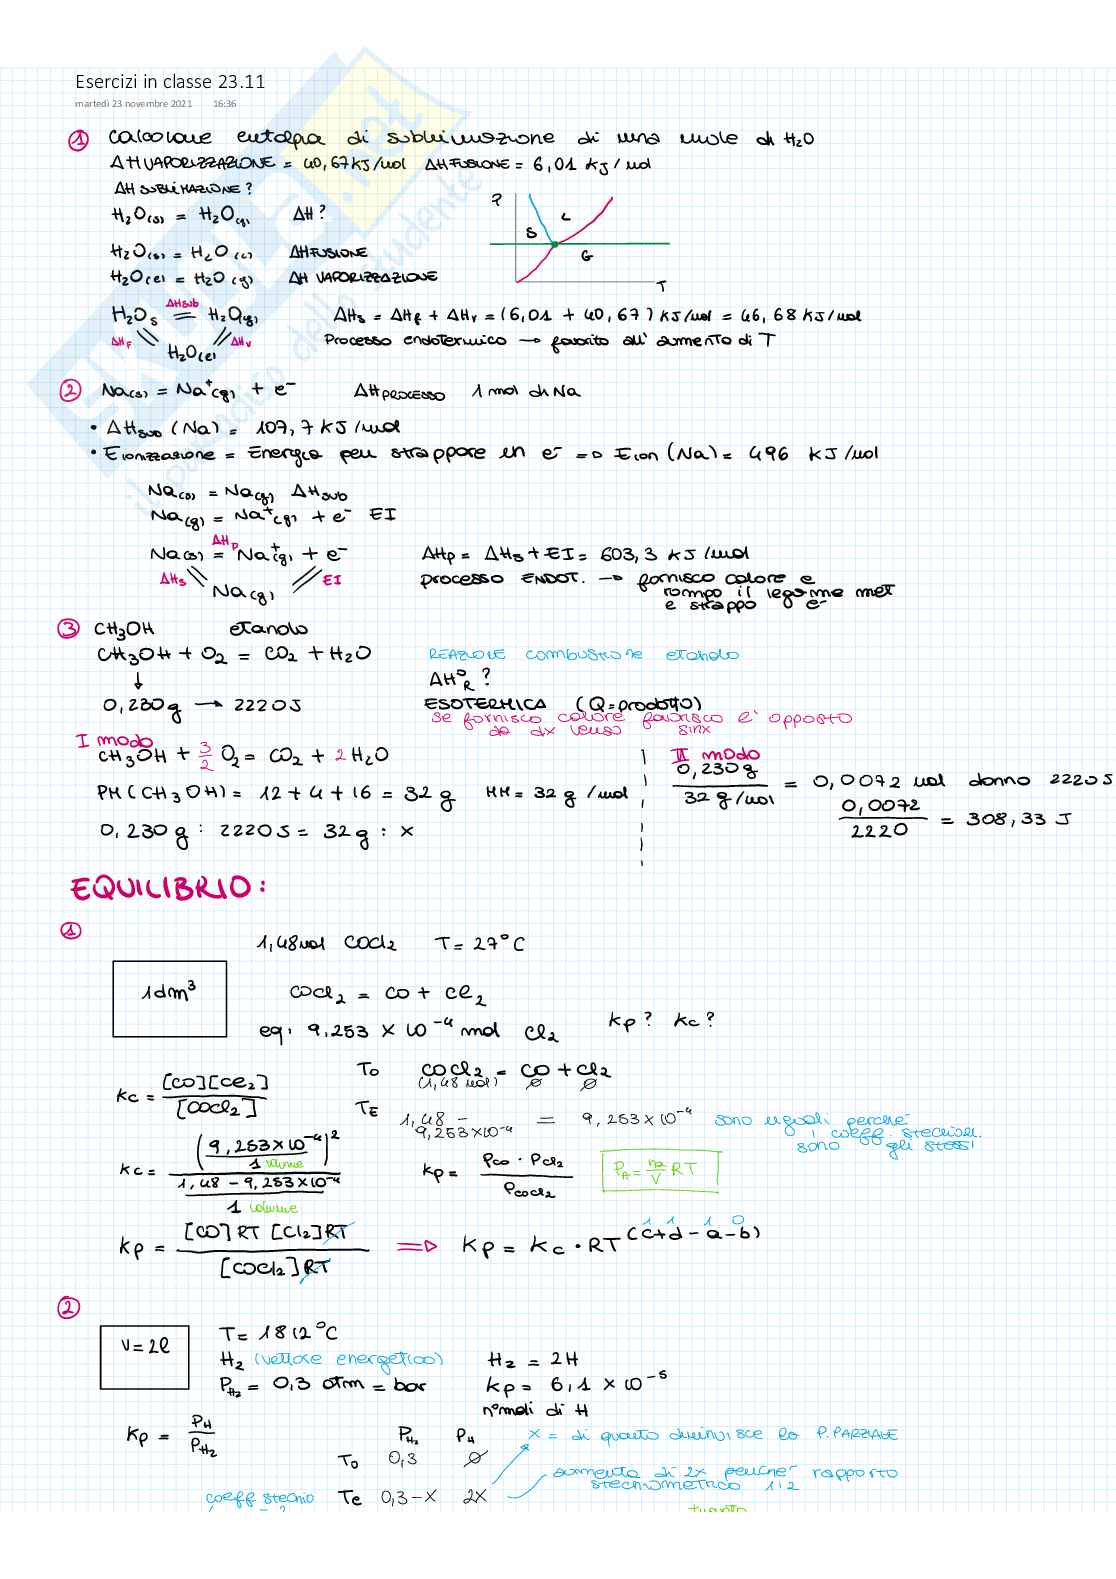 Esercizi in classe 23.11
martedì 23 novembre 2021 16:36
① Calcolare entalpia di sublimazione di una mole di H₂O
ΔH VAPORIZZAZIONE = 40,67 KJ/mol ΔH FUSIONE = 6,01 KJ/mol
ΔH SUBLIMAZIONE?
H₂O(s) = H₂O(g) ΔH?
H₂O(s) = H₂O(l) ΔH FUSIONE
H₂O(l) = H₂O(g) ΔH VAPORIZZAZIONE
P
S L
G
T
H₂O s ΔHsub = H₂O(g)
ΔHF H₂O(l) ΔHv
ΔHs = ΔHf + ΔHv = (6,01 + 40,67) KJ/mol = 46,68 KJ/mol
Processo endotermico → favorito all'aumento di T
② Na(s) = Na⁺(g) + e⁻ ΔH PROCESSO 1 mol di Na
• ΔHsub (Na) = 107,7 KJ/mol
• Eionizzazione = Energia per strappare un e⁻ => Eion (Na) = 496 KJ/mol
Na(s) = Na(g) ΔHsub
Na(g) = Na⁺(g) + e⁻ EI
ΔHp
Na(s) = Na⁺(g) + e⁻
ΔHs Na(g) EI
ΔHp = ΔHs + EI = 603,3 KJ/mol
processo ENDOT. → fornisco calore e
rompo il legame met
e strappo e⁻
③ CH₃OH etanolo
CH₃OH + O₂ = CO₂ + H₂O REAZIONE combustione etanolo
↓ ΔH°R ?
0,230g → 2220J ESOTERMICA (Q=prodotto)
se fornisco calore favorisco l'opposto
da dx verso sinx
I modo
CH₃OH + 3/2 O₂ = CO₂ + 2 H₂O
PM (CH₃OH) = 12 + 4 + 16 = 32 g MM = 32 g/mol
0,230 g : 2220J = 32g : x
II modo
0,230g / 32 g/mol = 0,0072 mol danno 2220J
0,0072 / 2220 = 308,33 J
EQUILIBRIO:
①
1,48 mol COCl₂ T = 27°C
1dm³
COCl₂ = CO + Cl₂
eq. 9,253 × 10⁻⁴ mol Cl₂ Kp? Kc?
Kc = [CO][Cl₂] / [COCl₂]
T₀ COCl₂ = CO + Cl₂
(1,48 mol) ∅ ∅
TE 1,48 - 9,253×10⁻⁴ = 9,253×10⁻⁴ sono uguali perché
i coeff. stechiom.
sono gli stessi
Kc = (9,253×10⁻⁴ / 1 volume)² / (1,48 - 9,253×10⁻⁴ / 1 volume)
Kp = Pco · PCl₂ / Pcocl₂
PA = na/V RT
Kp = [CO]RT [Cl₂]RT / [COCl₂]RT ⇒ Kp = Kc · RT (c+d-a-b)
1 1 1 0
②
V = 2l
T = 1812°C
H₂ (vettore energetico) H₂ = 2H
PH₂ = 0,3 atm = bar Kp = 6,1 × 10⁻⁵
n°moli di H
Kp = PH / PH₂
PH₂ PH x = di quanto diminuisce la P. PARZIALE
T₀ 0,3 ∅
aumenta di 2x perché rapporto
stechiometrico 1:2
coeff stechio Te 0,3-x 2x